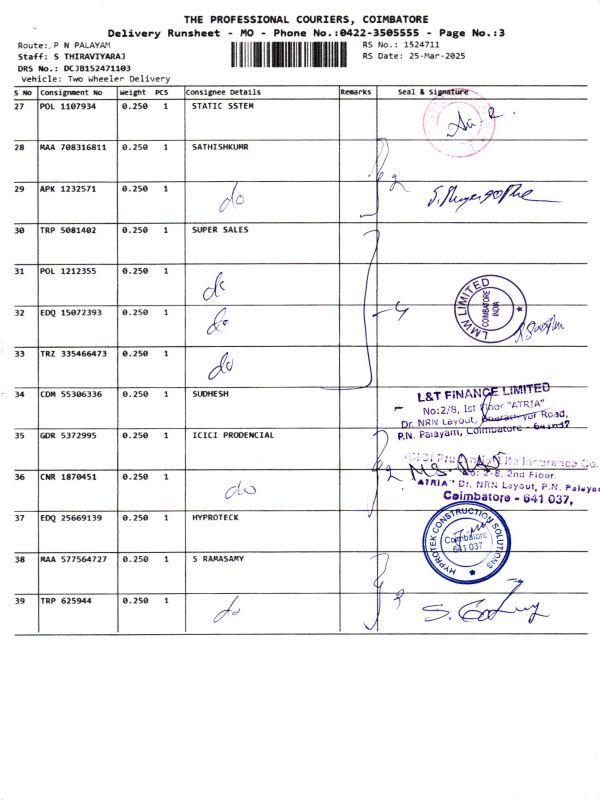 THE PROFESSIONAL COURIERS, COIMBATORE
Delivery Runsheet - MO - Phone No.:0422-3505555 - Page No.:3
Route: P N PALAYAM RS No.: 1524711
Staff: S THIRAVIYARAJ RS Date: 25-Mar-2025
DRS No.: DCJB152471103
Vehicle: Two Wheeler Delivery
S No Consignment No Weight PCS Consignee Details Remarks Seal & Signature
27 POL 1107934 0.250 1 STATIC SSTEM
28 MAA 708316811 0.250 1 SATHISHKUMR
29 APK 1232571 0.250 1 do 2
30 TRP 5081402 0.250 1 SUPER SALES
31 POL 1212355 0.250 1 do
LMW LIMITED
COIMBATORE
INDIA
32 EDQ 15072393 0.250 1 do 4
33 TRZ 335466473 0.250 1 do
34 CDM 55306336 0.250 1 SUDHESH
L&T FINANCE LIMITED
No:2/8, Ist Floor "ATRIA"
Dr. NRN Layout, Bharathiyar Road,
P.N. Palayam, Coimbatore - 641037
35 GDR 5372995 0.250 1 ICICI PRODENCIAL
ICICI Prudential Life Insurance Co.
No: 2-8, 2nd Floor,
"ATRIA" Dr. NRN Layout, P.N. Palaya
Coimbatore - 641 037,
36 CNR 1870451 0.250 1 do 2
37 EDQ 25669139 0.250 1 HYPROTECK
HYPROTEK CONSTRUCTION SOLUTIONS
Coimbatore
641 037
38 MAA 577564727 0.250 1 S RAMASAMY
39 TRP 625944 0.250 1 do 2